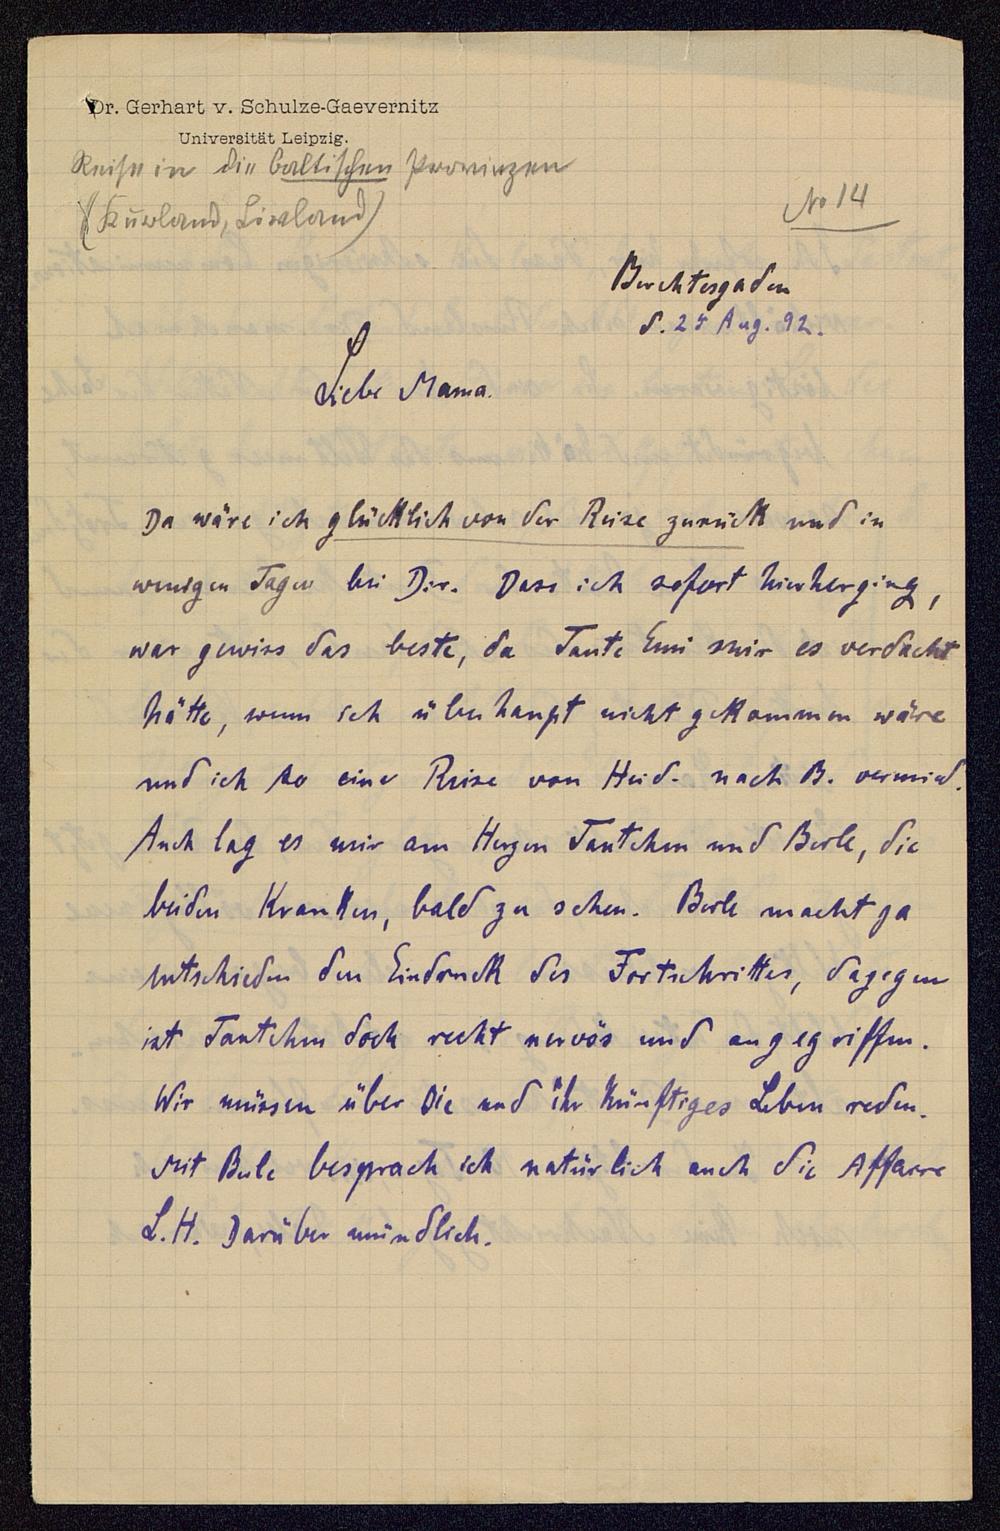 Dr. Gerhart v. Schulze-Gaevernitz
Universität Leipzig.
Reise in die baltischen Provinzen
(Kurland, Livland)
No 14
Berchtesgaden
d. 25 Aug. 92.
Liebe Mama.
Da wäre ich glücklich von der Reise zurück und in
wenigen Tagen bei Dir. Dass ich sofort hierherging,
war gewiss das beste, da Tante Emi mir es verdacht
hätte, wenn ich überhaupt nicht gekommen wäre
und ich so eine Reise von Heid. nach B. vermied.
Auch lag es mir am Herzen Tantchen und Berle, die
beiden Kranken, bald zu sehen. Berle macht ja
entschieden den Eindruck des Fortschrittes, dagegen
ist Tantchen doch recht nervös und angegriffen.
Wir müssen über Sie und ihr künftiges Leben reden.
Mit Berle besprach ich natürlich auch die Affaire
L.H. Darüber mündlich.